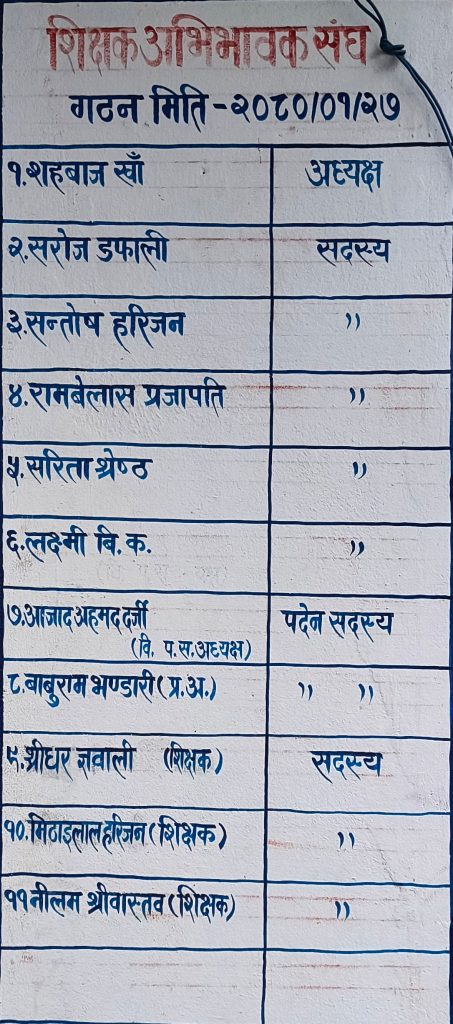 शिक्षक अभिभावक संघ
गठन मिति - २०८०/०१/२७
१. शहबाज खाँ अध्यक्ष
२. सरोज डफाली सदस्य
३. सन्तोष हरिजन ,,
४. रामबेलास प्रजापति ,,
५. सरिता श्रेष्ठ ,,
६. लक्ष्मी बि. क. ,,
७. आजाद अहमद दर्जी पदेन सदस्य
(वि. प. स. अध्यक्ष)
८. बाबुराम भण्डारी (प्र. अ.) ,, ,,
९. श्रीधर ज्ञवाली (शिक्षक) सदस्य
१०. मिठाइलाल हरिजन (शिक्षक) ,,
११ नीलम श्रीवास्तव (शिक्षक) ,,